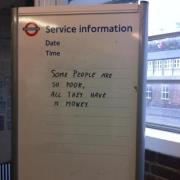 Service information
Date
Time
SOME PEOPLE ARE
SO POOR,
ALL THEY HAVE
IS MONEY.